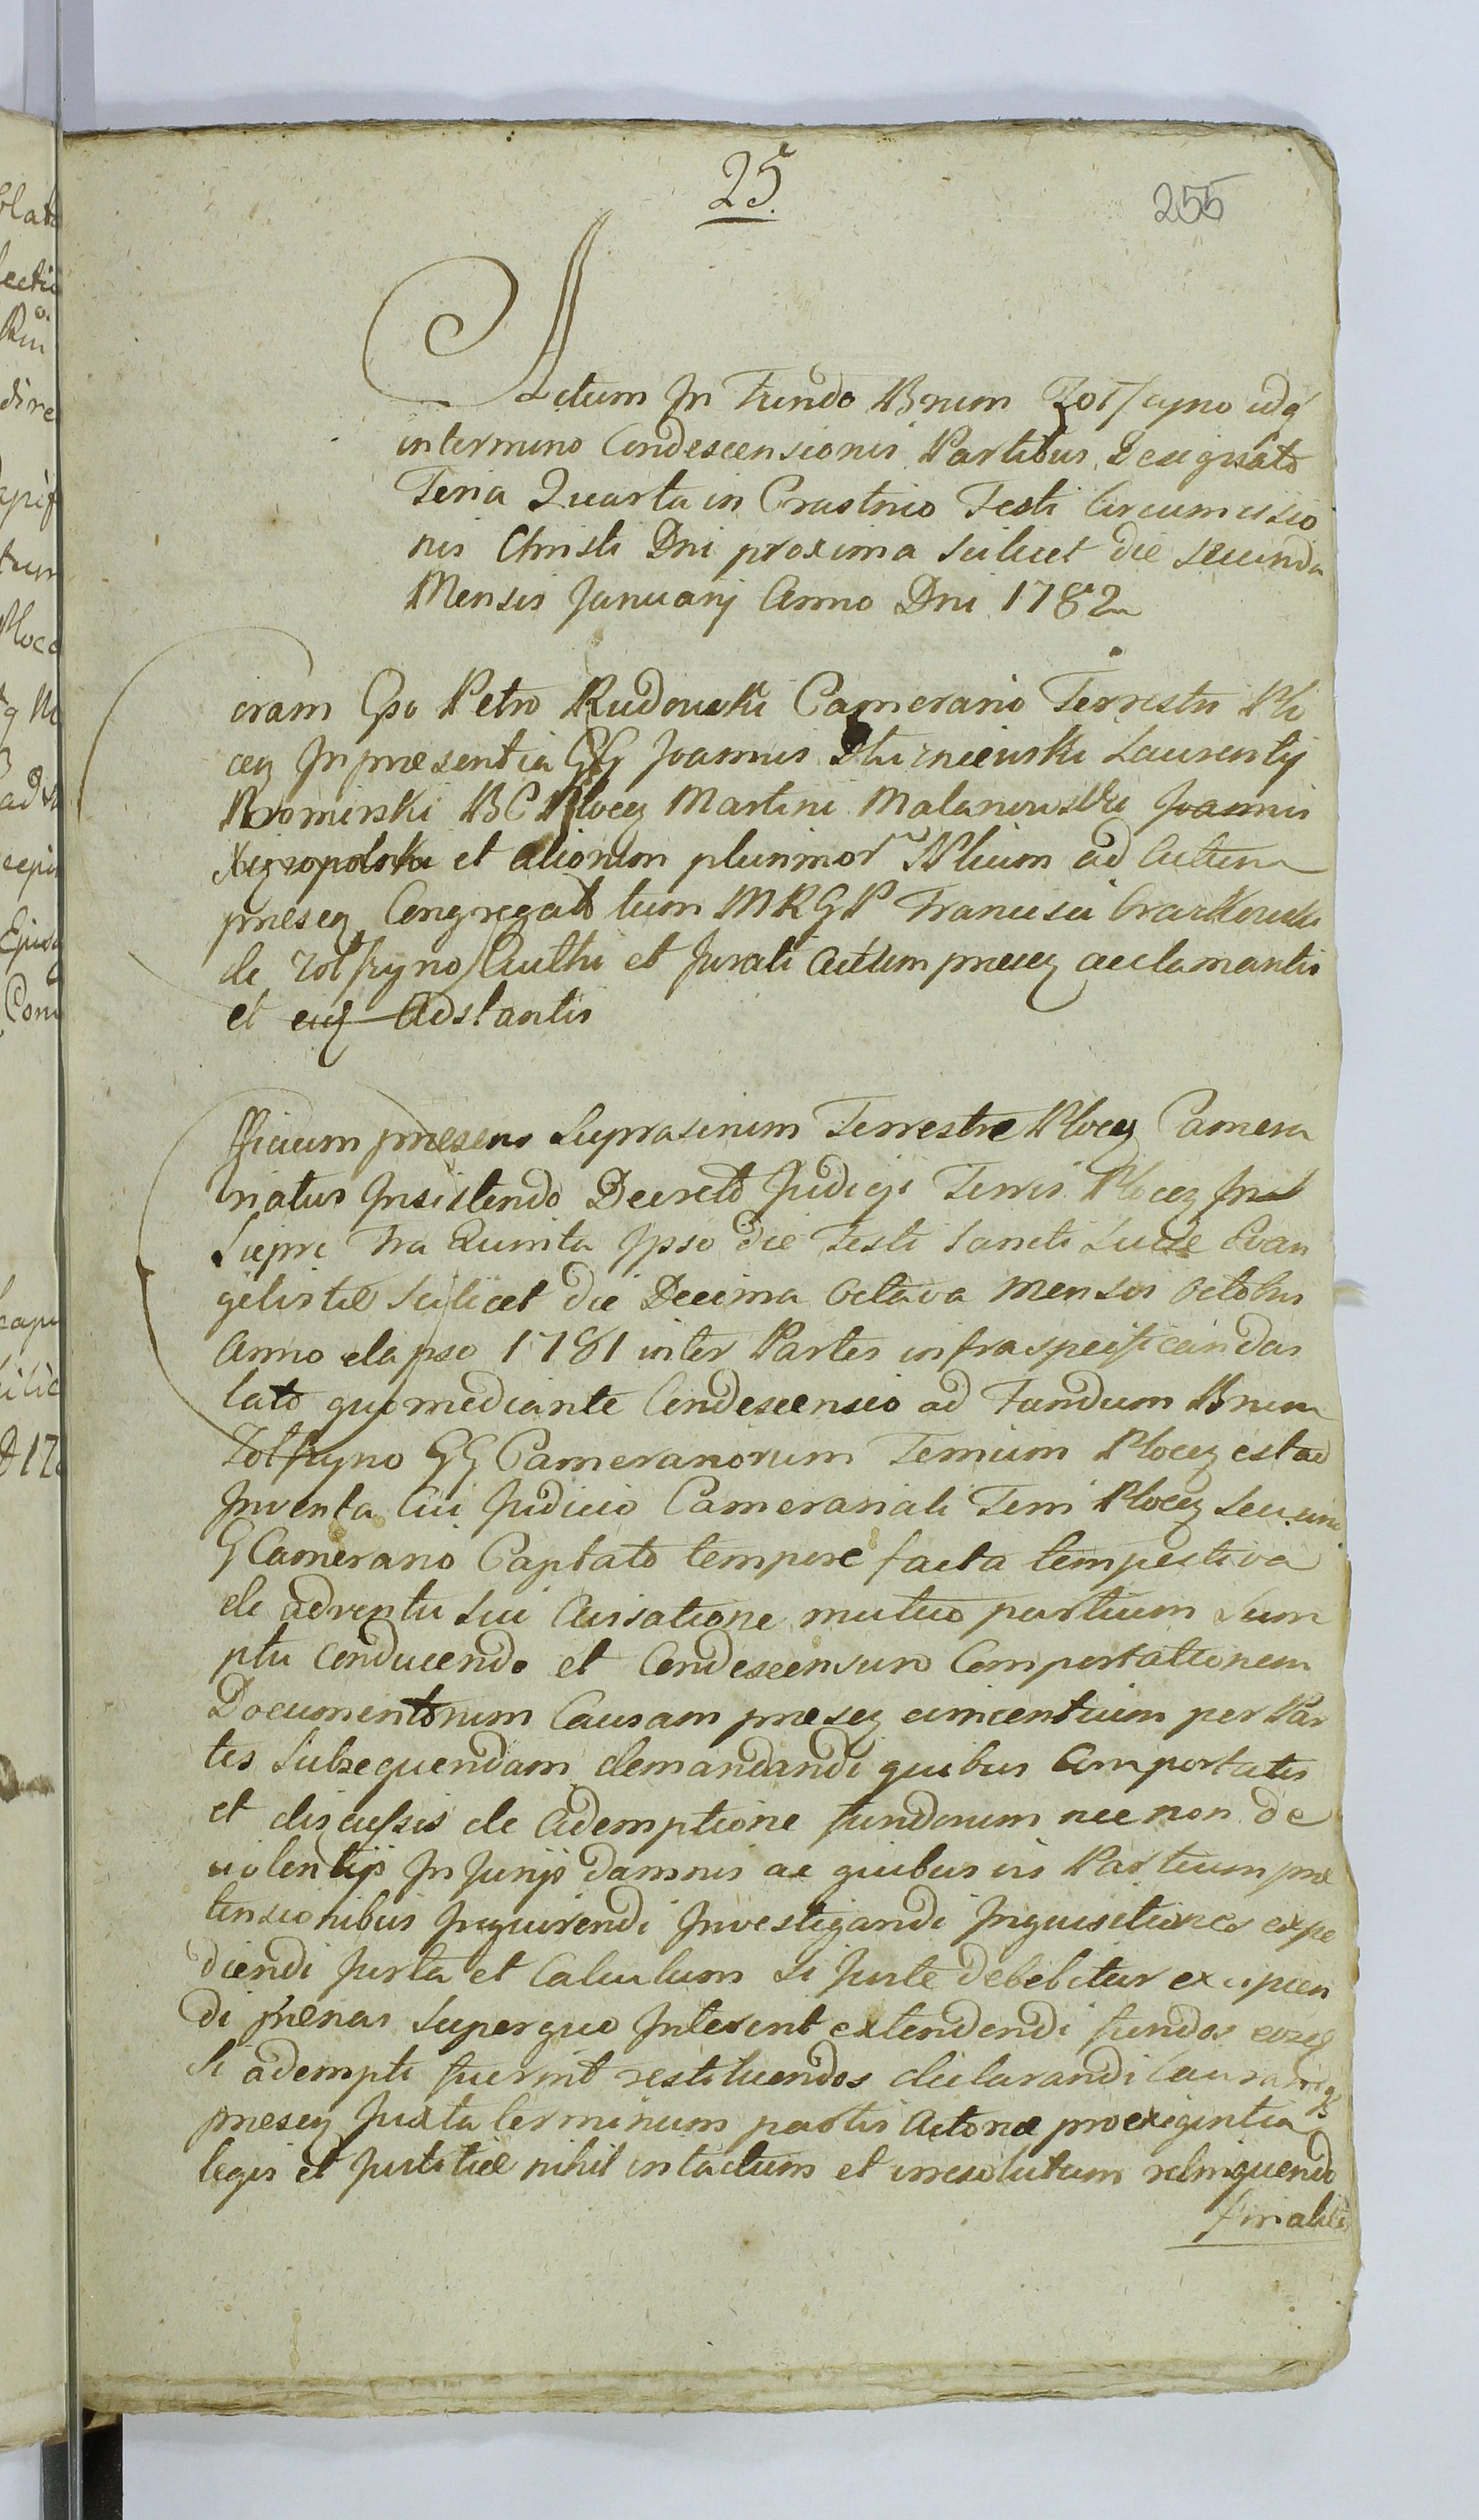 25
255
Actum In Fundo Bnum Zolszyno idq
in termino Condescensionis Partibus Designato
Feria Quarta in Crastino Festi Circumcisio
nis Christi Dni proxima scilicet die secunda
Mensis Januarij Anno Dni 1782
Coram Gso Petro Rudowski Camerario Terrestri Plo
cen In praesentia GG Joannis Laurentij
Bromirski BC Plocen Martini Malanowski Joannis
et aliorum plurimor Nlium ad Actum
praesen Congregato tum MRGP Francisci
de Zolszyno Culthi et Jurati Actum praesen acclamantis
et Adstantis
Officium praesens Suprascrium Terrestre Plocen Camera
riatus Insistendo Decreto Judicji Terris Plocen
Siepre Fra Quinta Ipso die Festi Sancti Lucae Evan
gelistae scilicet die Decima Octava Mensis Octobris
Anno elapso 1781 inter Partes infraspecificandas
lato quo mediante Condescensio ad Fundum Bnum
Zolszyno GG Camerariorum Terrium Plocen est ad
Inventa Cui Judicio Camerariali Terri Plocen seu uni
G Camerario Captato tempore facta tempestiva
de adventu sui Avisatione mutuo partium sum
ptu conducendo et Condescensuro Comportationem
Documentorum Causam praesen concernentium per Par
tes subsequendam demandandi quibus Comportatis
et discussis de Ademptione fundorum nec non de
violentijs Injurijs damnis ac quibusvis Partium prae
tensionibus Inquirendi Investigandi Inquisitiones expe
diendi Jurta et Calculum si juste debebitur excipien
di paenas super quo Interint extendendi fundos eosq
si adempti fuerint restituendos declarandi Causamq
praesen Juxta terminum partis Actorae pro exigentia
legis et Justitiae nihil intactum et irresolutum relinquendo
finaliter